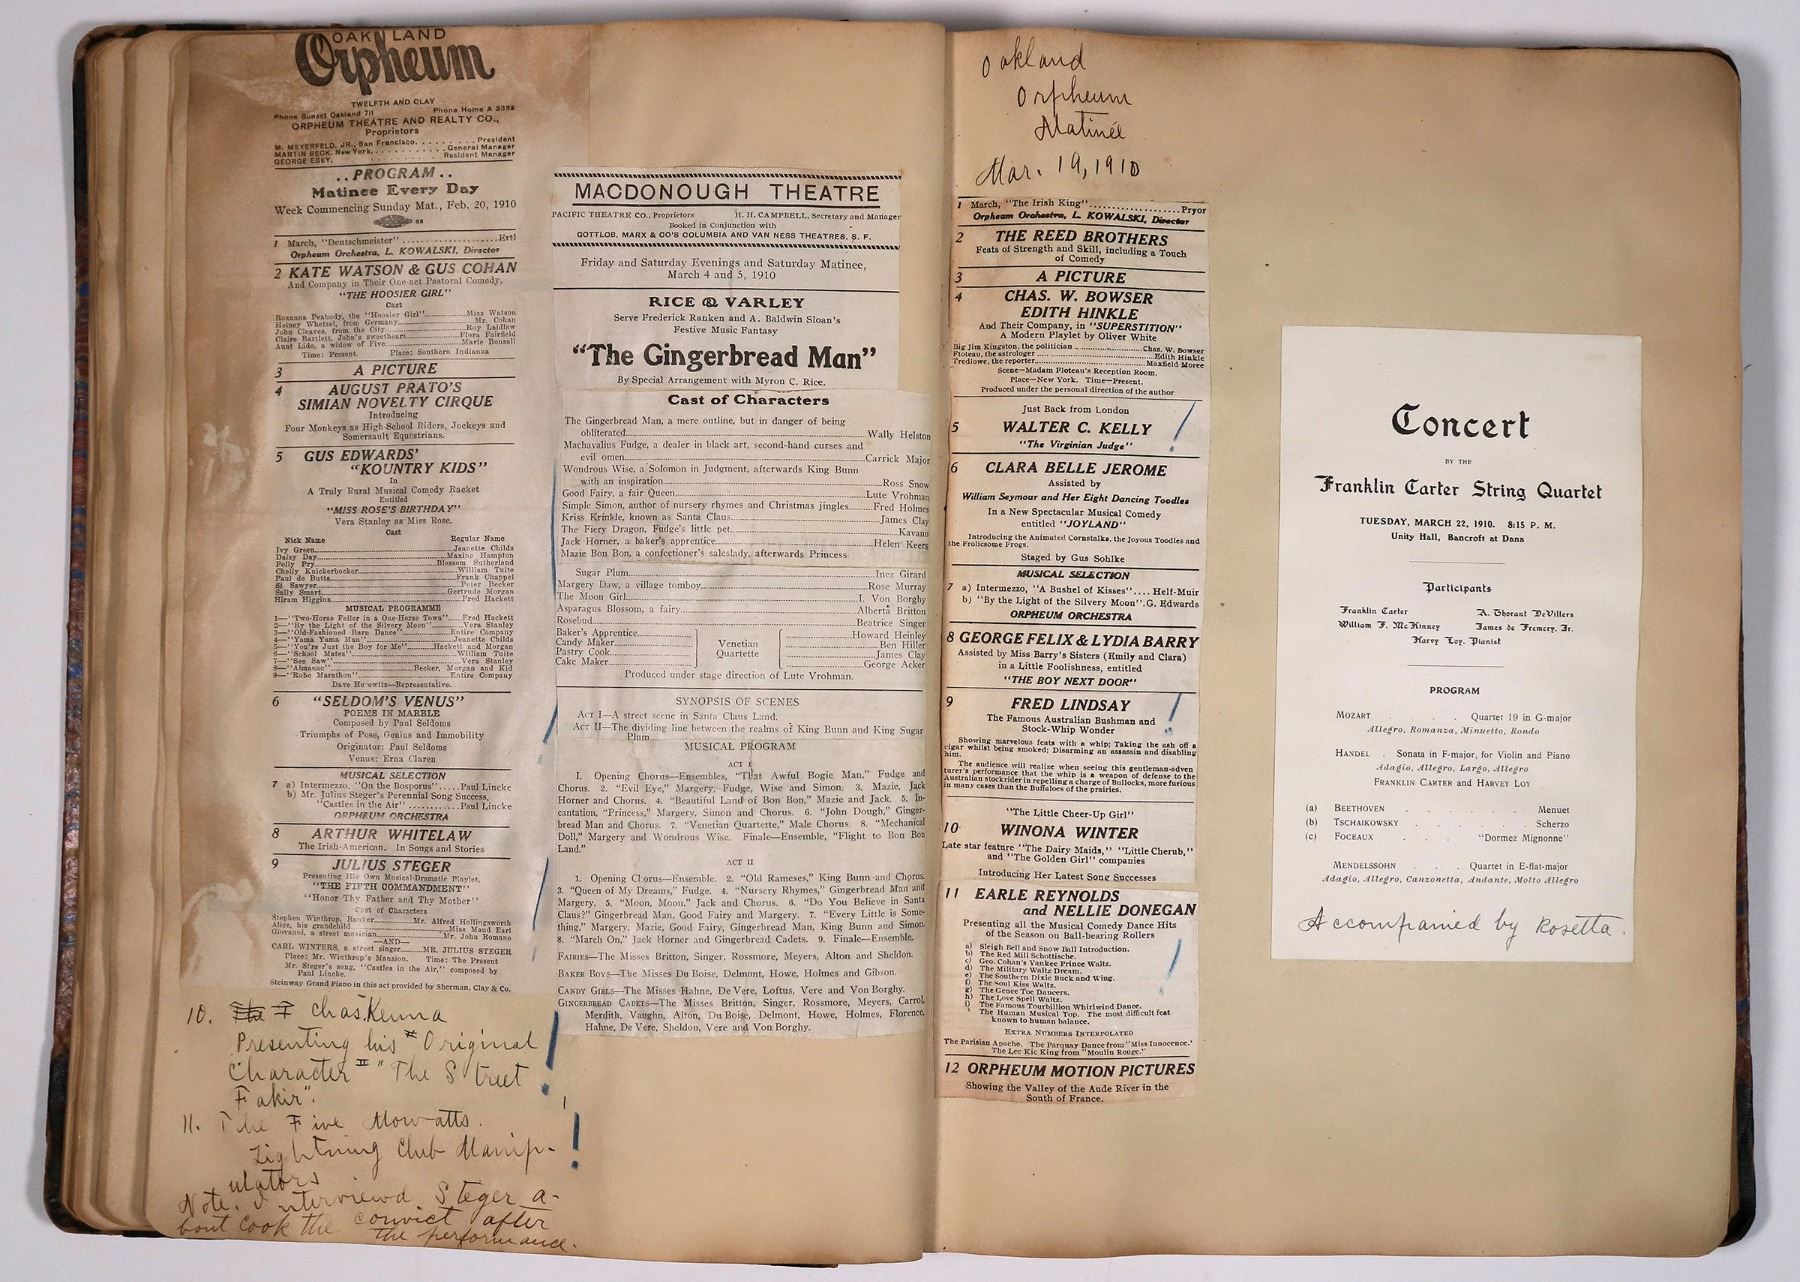 OAKLAND
Orpheum
TWELFTH AND CLAY
Phone Sunset Oakland 711 Phone Home A 3333
ORPHEUM THEATRE AND REALTY CO.,
Proprietors
M. MEYERFELD, JR., San Francisco. . . . . . . . . President
MARTIN BECK, New York. . . . . . . . . . General Manager
GEORGE EBEY. . . . . . . . . . Resident Manager
..PROGRAM..
Matinee Every Day
Week Commencing Sunday Mat., Feb. 20, 1910
1 March, "Deutschmeister" ....................Ertl
Orpheum Orchestra, L. KOWALSKI, Director
2 KATE WATSON & GUS COHAN
And Company in Their One-act Pastoral Comedy,
"THE HOOSIER GIRL"
Cast
Roxanna Peabody, the "Hoosier Girl"..........Miss Watson
Heiney Whetzel, from Germany..........Mr. Cohan
John Cleaves, from the City..........Roy Laidlaw
Claire Bartlett, John's sweetheart..........Flora Fairfield
Aunt Lide, a widow of Five..........Marie Bonsall
Time: Present. Place: Southern Indianna
3 A PICTURE
4 AUGUST PRATO'S
SIMIAN NOVELTY CIRQUE
Introducing
Four Monkeys as High-School Riders, Jockeys and
Somersault Equestrians.
5 GUS EDWARDS'
"KOUNTRY KIDS"
In
A Truly Rural Musical Comedy Racket
Entitled
"MISS ROSE'S BIRTHDAY"
Vera Stanley as Miss Rose.
Cast
Nick Name Regular Name
Ivy Green..........Jeanette Childs
Daisy Day..........Maxine Hampton
Polly Pry..........Blossom Sutherland
Cholly Knickerbocker..........William Tuite
Paul de Butts..........Frank Chappel
Si Sawyer..........Peter Becker
Sally Smart..........Gertrude Morgan
Hiram Higgins..........Fred Hackett
MUSICAL PROGRAMME
1—"Two-Horse Feller in a One-Horse Town".....Fred Hackett
2—"By the Light of the Silvery Moon".....Vera Stanley
3—"Old-Fashioned Barn Dance".....Entire Company
4—"Yama Yama Man".....Jeanette Childs
5—"You're Just the Boy for Me".....Hackett and Morgan
6—"School Mates".....William Tuite
7—"See Saw".....Vera Stanley
8—"Almanac".....Becker, Morgan and Kid
9—"Rube Marathon".....Entire Company
Dave Horowitz—Representative.
6 "SELDOM'S VENUS"
POEMS IN MARBLE
Composed by Paul Seldoms
Triumphs of Pose, Genius and Immobility
Originator: Paul Seldoms
Venus: Erna Claren
MUSICAL SELECTION
7 a) Intermezzo, "On the Bosporus".....Paul Lincke
b) Mr. Julius Steger's Perennial Song Success,
"Castles in the Air" ...........Paul Lincke
ORPHEUM ORCHESTRA
8 ARTHUR WHITELAW
The Irish-American. In Songs and Stories
9 JULIUS STEGER
Presenting His Own Musical-Dramatic Playlet,
"THE FIFTH COMMANDMENT"
"Honor Thy Father and Thy Mother"
Cast of Characters
Stephen Winthrop, Banker..........Mr. Alfred Hollingsworth
Alice, his grandchild..........Miss Maud Earl
Giovanni, a street musician..........Mr. John Romano
—AND—
CARL WINTERS, a street singer..........MR. JULIUS STEGER
Place: Mr. Winthrop's Mansion. Time: The Present
Mr. Steger's song, "Castles in the Air," composed by
Paul Lincke.
Steinway Grand Piano in this act provided by Sherman, Clay & Co.
10. Chas. Kenna
Presenting his "Original
Character" "The Street
Fakir".
11. The Five Mowatts.
Lightning Club Manip-
ulators
Note. I interviewd Steger a-
bout Cook the convict after
the performance.
MACDONOUGH THEATRE
PACIFIC THEATRE CO., Proprietors H. H. CAMPBELL, Secretary and Manager
Booked in Conjunction with
GOTTLOB, MARX & CO'S COLUMBIA AND VAN NESS THEATRES, S. F.
Friday and Saturday Evenings and Saturday Matinee,
March 4 and 5, 1910
RICE & VARLEY
Serve Frederick Ranken and A. Baldwin Sloan's
Festive Music Fantasy
"The Gingerbread Man"
By Special Arrangement with Myron C. Rice.
Cast of Characters
The Gingerbread Man, a mere outline, but in danger of being
obliterated..........Wally Helston
Machavalius Fudge, a dealer in black art, second-hand curses and
evil omen..........Carrick Major
Wondrous Wise, a Solomon in Judgment, afterwards King Bunn
with an inspiration..........Ross Snow
Good Fairy, a fair Queen..........Lute Vrohman
Simple Simon, author of nursery rhymes and Christmas jingles.......Fred Holmes
Kriss Krinkle, known as Santa Claus..........James Clay
The Fiery Dragon, Fudge's little pet..........Kavano
Jack Horner, a baker's apprentice..........Helen Keers
Mazie Bon Bon, a confectioner's saleslady, afterwards Princess
Sugar Plum..........Inez Girard
Margery Daw, a village tomboy..........Rose Murray
The Moon Girl..........I. Von Borghy
Asparagus Blossom, a fairy..........Alberta Britton
Rosebud..........Beatrice Singer
Baker's Apprentice..........Howard Heinley
Candy Maker.......... Venetian ..........Ben Hiller
Pastry Cook.......... Quartette ..........James Clay
Cake Maker..........George Acker
Produced under stage direction of Lute Vrohman.
SYNOPSIS OF SCENES
ACT I—A street scene in Santa Claus Land.
ACT II—The dividing line between the realms of King Bunn and King Sugar
Plum.
MUSICAL PROGRAM
ACT I
1. Opening Chorus—Ensembles, "That Awful Bogie Man," Fudge and
Chorus. 2. "Evil Eye," Margery, Fudge, Wise and Simon. 3. Mazie, Jack
Horner and Chorus. 4. "Beautiful Land of Bon Bon," Mazie and Jack. 5. In-
cantation, "Princess," Margery, Simon and Chorus. 6. "John Dough," Ginger-
bread Man and Chorus. 7. "Venetian Quartette," Male Chorus. 8. "Mechanical
Doll," Margery and Wondrous Wise. Finale—Ensemble, "Flight to Bon Bon
Land."
ACT II
1. Opening Chorus—Ensemble. 2. "Old Rameses," King Bunn and Chorus.
3. "Queen of My Dreams," Fudge. 4. "Nursery Rhymes," Gingerbread Man and
Margery. 5. "Moon, Moon," Jack and Chorus. 6. "Do You Believe in Santa
Claus?" Gingerbread Man, Good Fairy and Margery. 7. "Every Little is Some-
thing," Margery, Mazie, Good Fairy, Gingerbread Man, King Bunn and Simon.
8. "March On," Jack Horner and Gingerbread Cadets. 9. Finale—Ensemble.
FAIRIES—The Misses Britton, Singer, Rossmore, Meyers, Alton and Sheldon.
BAKER BOYS—The Misses Du Boise, Delmont, Howe, Holmes and Gibson.
CANDY GIRLS—The Misses Hahne, De Vere, Loftus, Vere and Von Borghy.
GINGERBREAD CADETS—The Misses Britton, Singer, Rossmore, Meyers, Carrol,
Merdith, Vaughn, Alton, Du Boise, Delmont, Howe, Holmes, Florence,
Hahne, De Vere, Sheldon, Vere and Von Borghy.
Oakland
Orpheum
Matinée
Mar. 19, 1910
1 March, "The Irish King"....................Pryor
Orpheum Orchestra, L. KOWALSKI, Director
2 THE REED BROTHERS
Feats of Strength and Skill, including a Touch
of Comedy
3 A PICTURE
4 CHAS. W. BOWSER
EDITH HINKLE
And Their Company, in "SUPERSTITION"
A Modern Playlet by Oliver White
Big Jim Kingston, the politician ..........Chas. W. Bowser
Floteau, the astrologer ..........Edith Hinkle
Tredlowe, the reporter..........Maxfield Moree
Scene—Madam Floteau's Reception Room.
Place—New York. Time—Present.
Produced under the personal direction of the author
Just Back from London
5 WALTER C. KELLY
"The Virginian Judge"
6 CLARA BELLE JEROME
Assisted by
William Seymour and Her Eight Dancing Toodles
In a New Spectacular Musical Comedy
entitled "JOYLAND"
Introducing the Animated Cornstalks, the Joyous Toodles and
the Frolicsome Frogs.
Staged by Gus Sohlke
MUSICAL SELECTION
7 a) Intermezzo, "A Bushel of Kisses".... Helf-Muir
b) "By the Light of the Silvery Moon".G. Edwards
ORPHEUM ORCHESTRA
8 GEORGE FELIX & LYDIA BARRY
Assisted by Miss Barry's Sisters (Emily and Clara)
in a Little Foolishness, entitled
"THE BOY NEXT DOOR"
9 FRED LINDSAY
The Famous Australian Bushman and
Stock-Whip Wonder
Showing marvelous feats with a whip; Taking the ash off a
cigar whilst being smoked; Disarming an assassin and disabling
him.
The audience will realize when seeing this gentleman-adven
turer's performance that the whip is a weapon of defense to the
Australian stockrider in repelling a charge of Bullocks, more furious
in many cases than the Buffaloes of the prairies.
"The Little Cheer-Up Girl"
10 WINONA WINTER
Late star feature "The Dairy Maids," "Little Cherub,"
and "The Golden Girl" companies
Introducing Her Latest Song Successes
11 EARLE REYNOLDS
and NELLIE DONEGAN
Presenting all the Musical Comedy Dance Hits
of the Season on Ball-bearing Rollers
a) Sleigh Bell and Snow Ball Introduction.
b) The Red Mill Schottische.
c) Geo. Cohan's Yankee Prince Waltz.
d) The Military Waltz Dream.
e) The Southern Dixie Buck and Wing.
f) The Soul Kiss Waltz.
g) The Genee Toe Dancers.
h) The Love Spell Waltz.
i) The Famous Tourbillion Whirlwind Dance.
The Human Musical Top. The most difficult feat
known to human balance.
EXTRA NUMBERS INTERPOLATED
The Parisian Apache. The Parquay Dance from "Miss Innocence."
The Lee Kic King from "Moulin Rouge."
12 ORPHEUM MOTION PICTURES
Showing the Valley of the Aude River in the
South of France.
Concert
BY THE
Franklin Carter String Quartet
TUESDAY, MARCH 22, 1910. 8:15 P. M.
Unity Hall, Bancroft at Dana
Participants
Franklin Carter A. Thorant DeVillers
William F. McKinney James de Fremery, Jr.
Harvy Loy, Pianist
PROGRAM
MOZART . . . . Quartet 19 in G-major
Allegro, Romanza, Minuetto, Rondo
HANDEL . Sonata in F-major, for Violin and Piano
Adagio, Allegro, Largo, Allegro
FRANKLIN CARTER and HARVEY LOY
(a) BEETHOVEN . . . . . . . Menuet
(b) TSCHAIKOWSKY . . . . . . . Scherzo
(c) FOCEAUX . . . . "Dormez Mignonne"
MENDELSSOHN . . . Quartet in E-flat-major
Adagio, Allegro, Canzonetta, Andante, Molto Allegro
Accompanied by Rosetta.